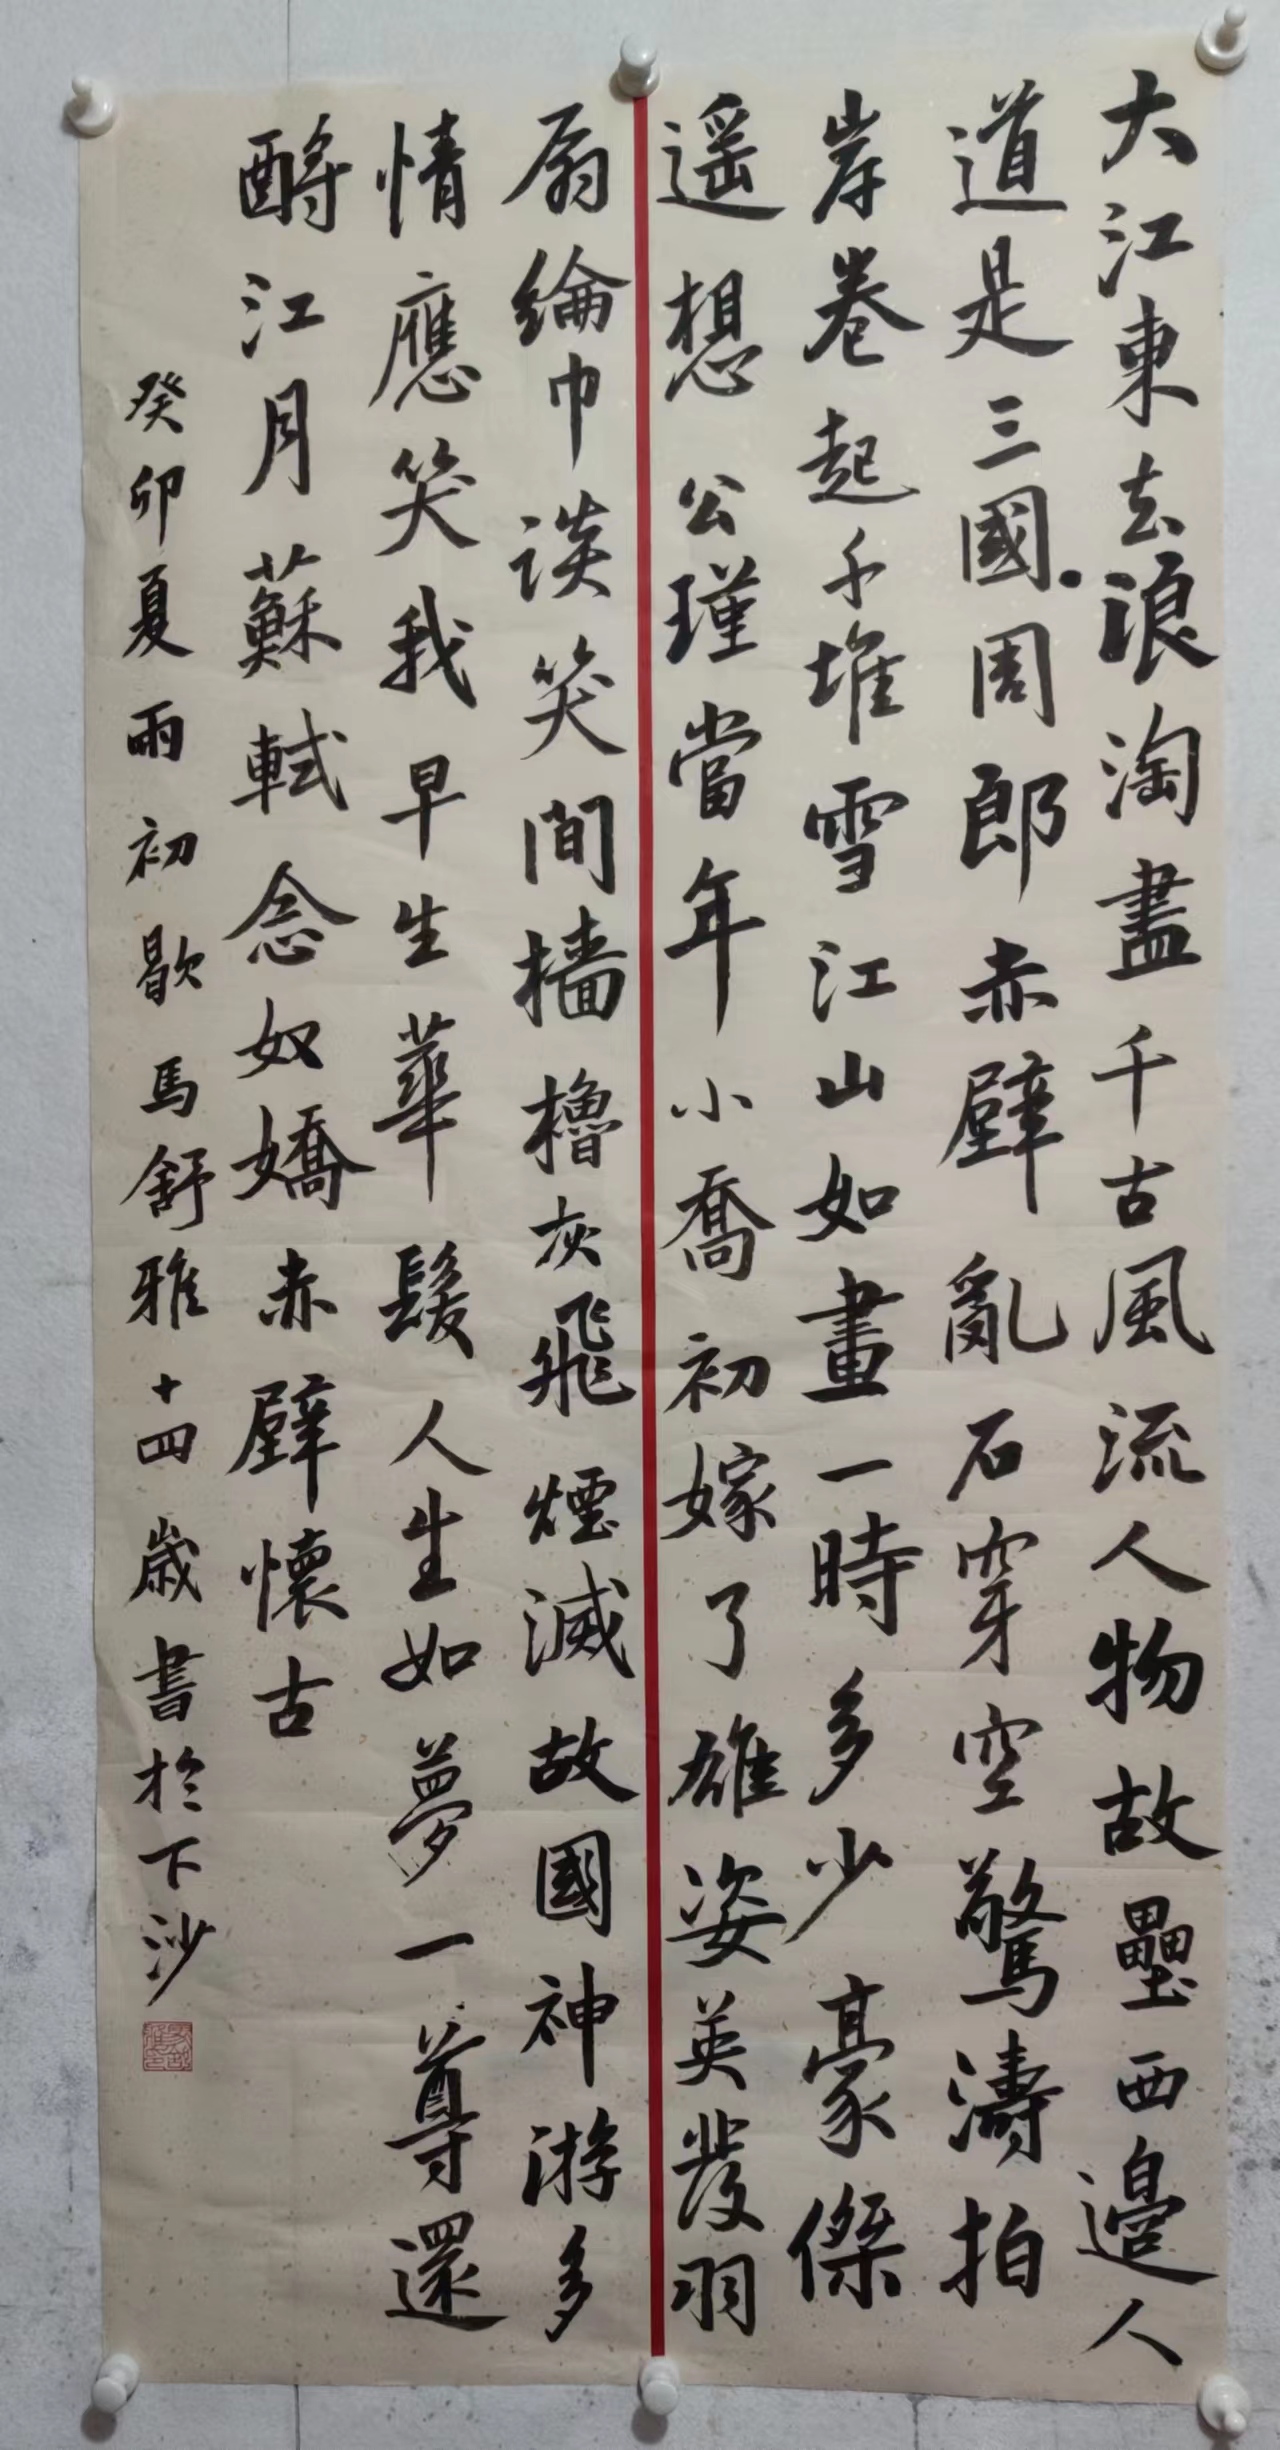 大江東去浪淘盡千古風流人物故壘西邊人
道是三國周郎赤壁亂石穿空驚濤拍
岸卷起千堆雪江山如畫一時多少豪傑
遥想公瑾當年小喬初嫁了雄姿英發羽
扇綸巾談笑間檣櫓灰飛煙滅故國神游多
情應笑我早生華髮人生如夢一尊還
酹江月蘇軾念奴嬌赤壁懷古
癸卯夏雨初歇馬舒雅十四歲書於下沙